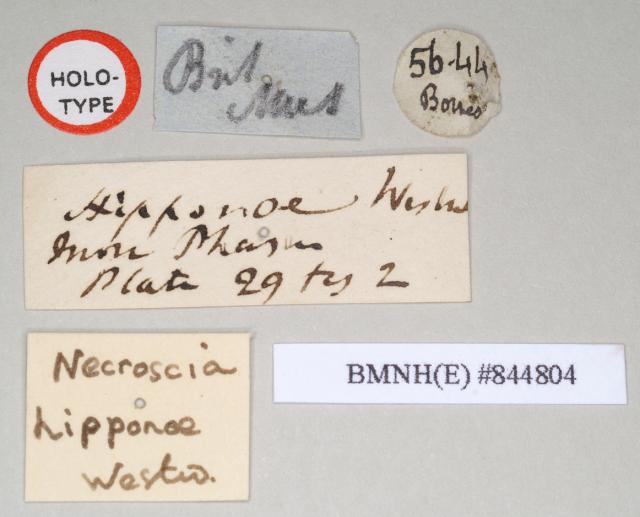 HOLO-
TYPE
Brit
Mus
56·44
Borneo
Hipponoe Westw
Mon Phasm
Plate 29 fig 2
Necroscia
hipponoe
Westw.
BMNH(E) #844804